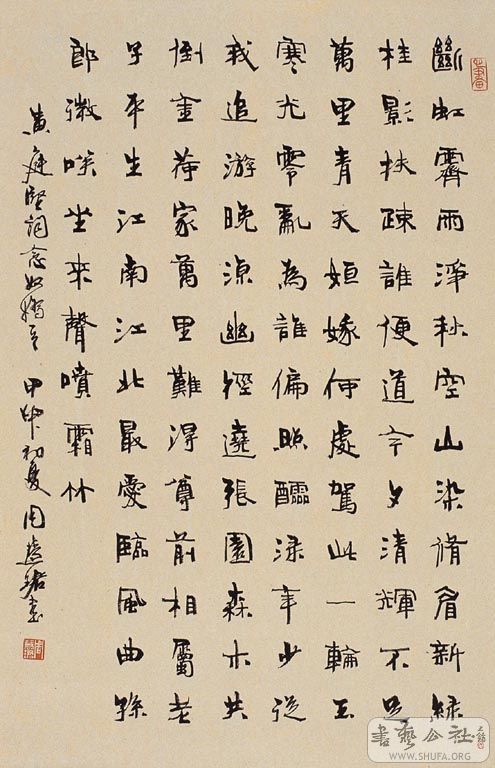 斷虹霽雨淨秋空山染脩眉新綠
桂影扶疎誰便道今夕清輝不足
萬里青天姮娥何處駕此一輪玉
寒光零亂為誰偏照醽淥年少從
我追游晚涼幽徑遶張園森木共
倒金荷家萬里難得尊前相屬老
子平生江南江北最愛臨風曲孫
郎微咲坐來聲噴霜竹
黃庭堅詞念奴嬌 甲申初夏周書
書藝公社
WWW.SHUFA.ORG